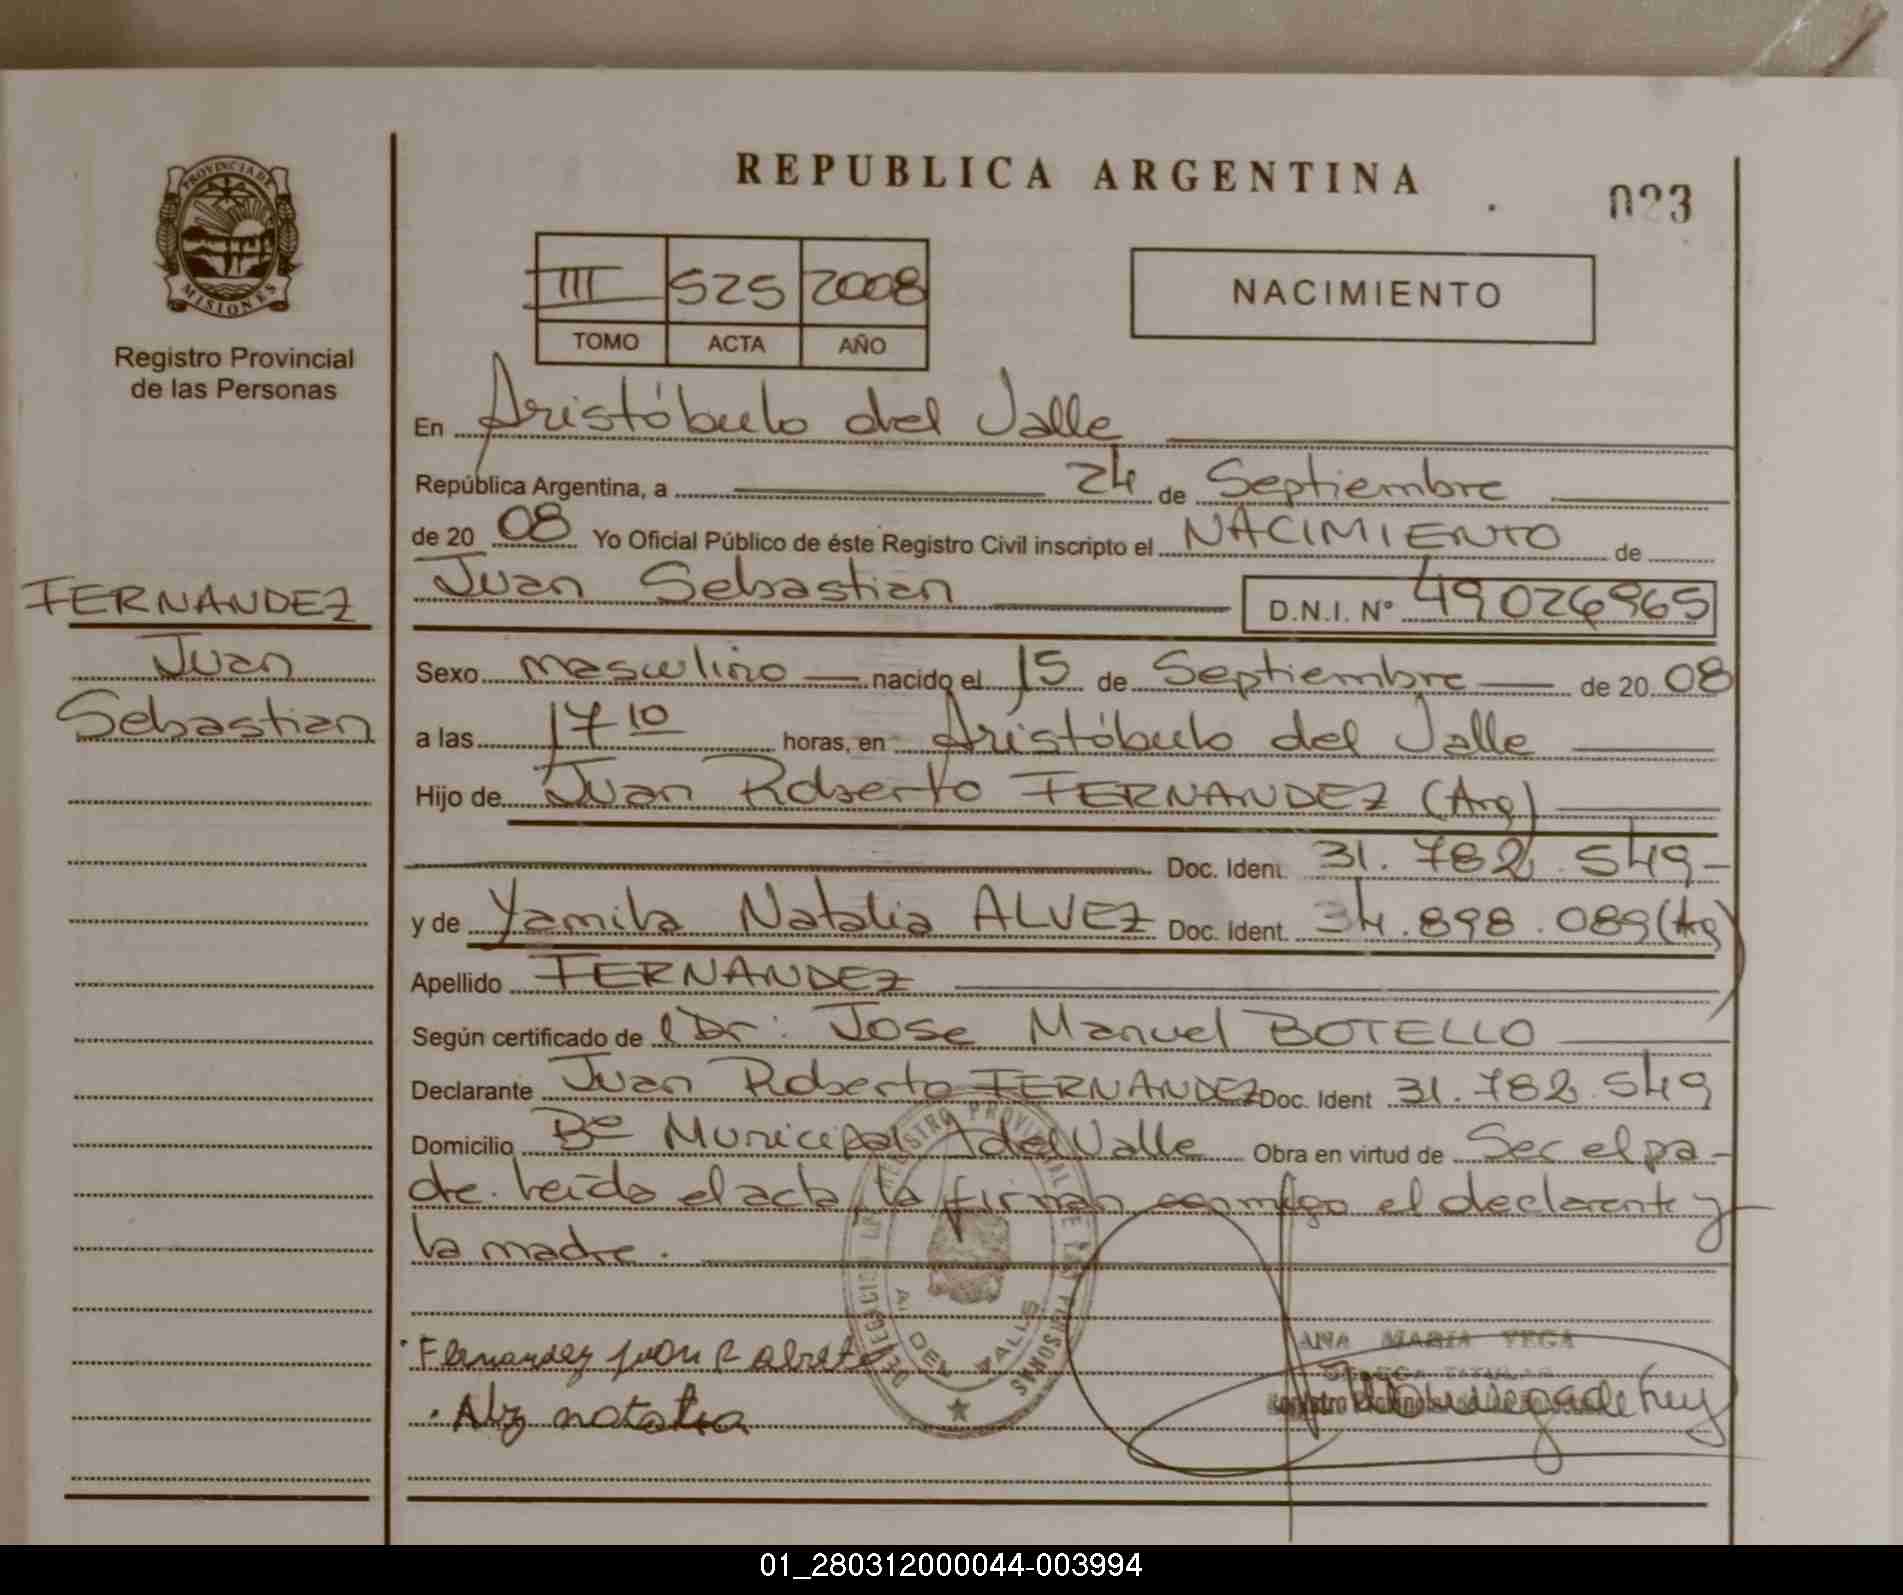 REPUBLICA ARGENTINA
023
PROVINCIA DE
MISIONES
Registro Provincial
de las Personas
III 525 2008
TOMO ACTA AÑO
NACIMIENTO
En Aristóbulo del Valle
República Argentina, a 24 de Septiembre
de 20 08 Yo Oficial Público de éste Registro Civil inscripto el NACIMIENTO de
Juan Sebastian D.N.I. Nº 49026965
FERNANDEZ
Juan
Sebastian
Sexo masculino nacido el 15 de Septiembre de 20 08
a las 17 10 horas, en Aristóbulo del Valle
Hijo de Juan Roberto FERNANDEZ (Arg)
Doc. Ident. 31.782.549-
y de Yamila Natalia ALVEZ Doc. Ident. 34.898.089 (Arg)
Apellido FERNANDEZ
Según certificado de l Dr: Jose Manuel BOTELLO
Declarante Juan Roberto FERNANDEZ Doc. Ident 31.782.549
Domicilio Bº Municipal A del Valle Obra en virtud de Ser el pa-
dre. Leída el acta, la firman conmigo el declarante y
la madre.
Fernandez Juan Roberto
Alvz natalia
DELEGACION REGISTRO PROVINCIAL DE LAS PERSONAS
A. DEL VALLE
ANA MARIA VEGA
01_280312000044-003994